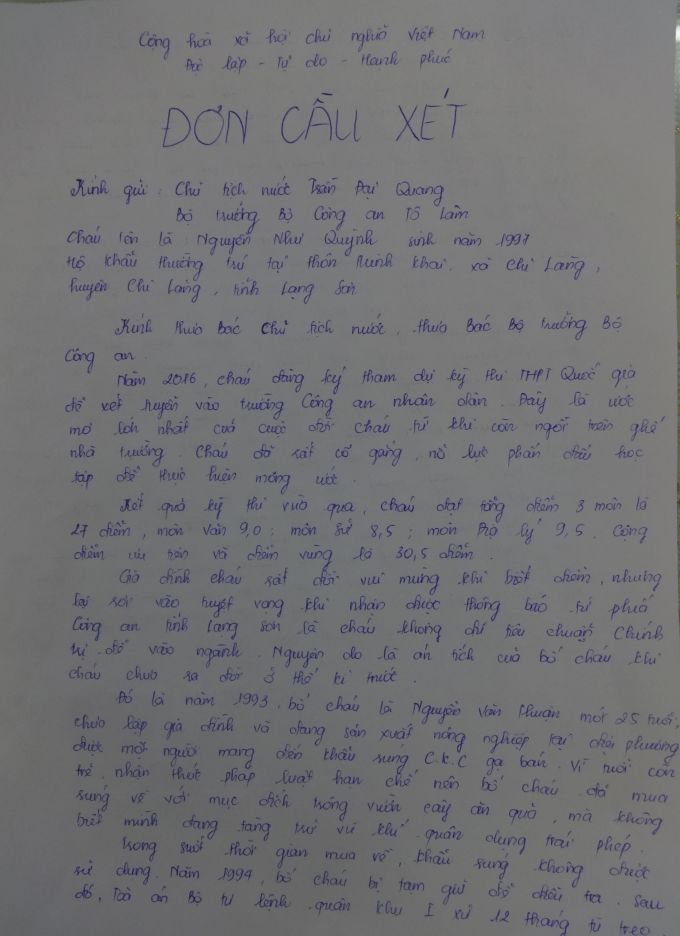 Cộng hoà xã hội chủ nghĩa Việt Nam
Độc lập - Tự do - Hạnh phúc
ĐƠN CẦU XÉT
Kính gửi : Chủ tịch nước Trần Đại Quang
Bộ trưởng Bộ Công an Tô Lâm
Cháu tên là Nguyễn Như Quỳnh sinh năm 1997
Hộ khẩu thường trú tại thôn Minh Khai, xã Chi Lăng,
huyện Chi Lăng, tỉnh Lạng Sơn
Kính thưa Bác Chủ tịch nước, thưa Bác Bộ trưởng Bộ
Công an.
Năm 2016, cháu đăng ký tham dự kỳ thi THPT Quốc gia
để xét tuyển vào trường Công an nhân dân. Đây là ước
mơ lớn nhất của cuộc đời cháu từ khi còn ngồi trên ghế
nhà trường. Cháu đã rất cố gắng, nỗ lực phấn đấu học
tập để thực hiện mong ước.
Kết quả kỳ thi vừa qua, cháu đạt tổng điểm 3 môn là
27 điểm, môn văn 9,0; môn sử 8,5; môn Địa lý 9,5. Cộng
điểm ưu tiên và điểm vùng là 30,5 điểm.
Gia đình cháu rất đỗi vui mừng khi biết điểm, nhưng
lại rơi vào tuyệt vọng khi nhận được thông báo từ phía
Công an tỉnh Lạng Sơn là cháu không đủ tiêu chuẩn Chính
trị để vào ngành. Nguyên do là án tích của bố cháu khi
cháu chưa ra đời ở thế kỉ trước.
Đó là năm 1993, bố cháu là Nguyễn Văn Thuận mới 25 tuổi,
chưa lập gia đình và đang sản xuất nông nghiệp tại địa phương
được một người mang đến khẩu súng C.K.C gạ bán. Vì tuổi còn
trẻ, nhận thức pháp luật hạn chế nên bố cháu đã mua
súng về với mục đích trông vườn cây ăn quả, mà không
biết mình đang tàng trữ vũ khí quân dụng trái phép.
Trong suốt thời gian mua về, khẩu súng không được
sử dụng. Năm 1994, bố cháu bị tạm giữ để điều tra. Sau
đó, Toà án Bộ tư lệnh quân khu I xử 12 tháng tù treo